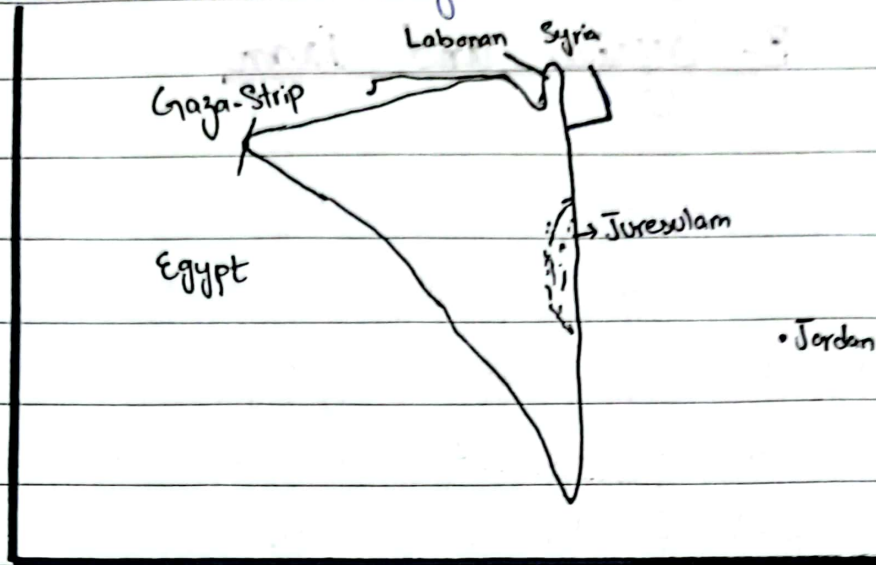 Labonan Syria
Gaza-Strip
Juresulam
Egypt
• Jordan